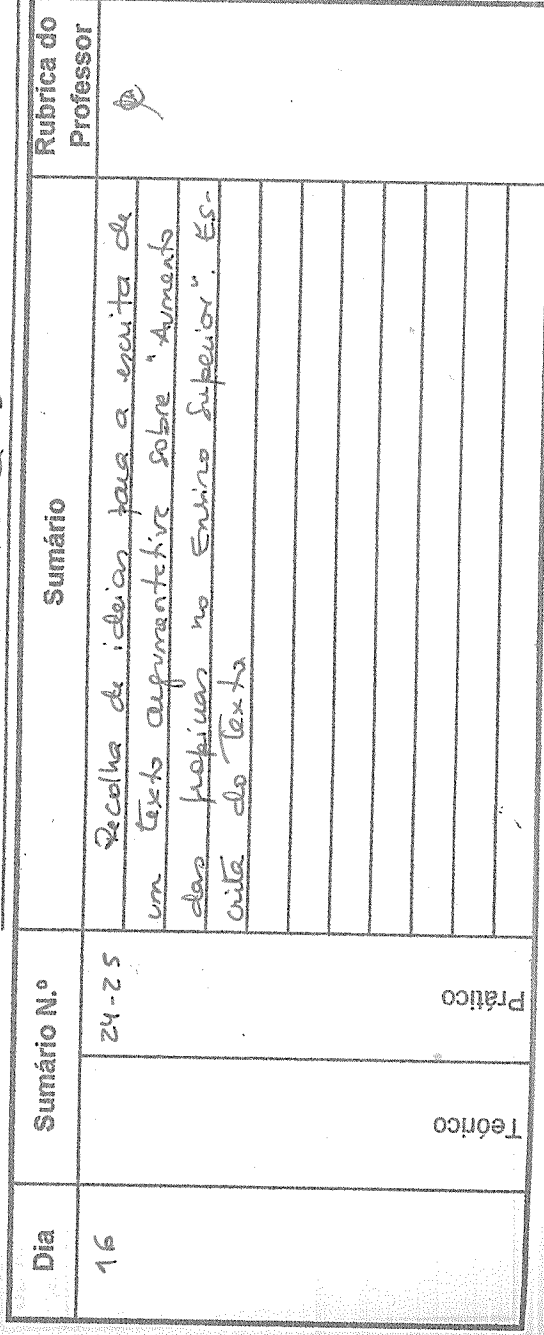 Dia
Sumário N.º
Sumário
Rubrica do
Professor
16
Teórico
24-25
Prático
Recolha de ideias para a escrita de
um texto argumentativo sobre "Aumento
das propinas no Ensino Superior". Es-
crita do Texto